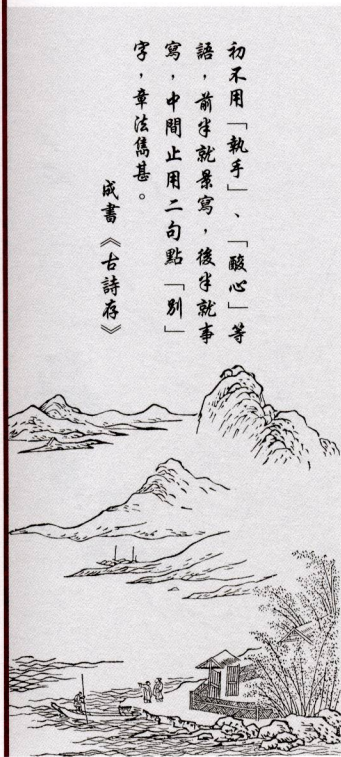 初不用「執手」、「酸心」等
語，前半就景寫，後半就事
寫，中間止用二句點「別」
字，章法雋甚。
成書《古詩存》